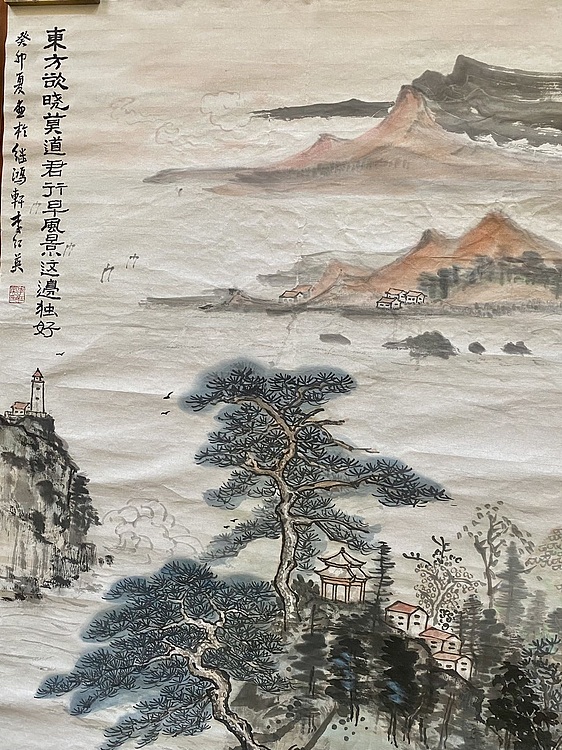 東方欲晓莫道君行早風景这邊独好
癸卯夏画於继鴻軒李红英